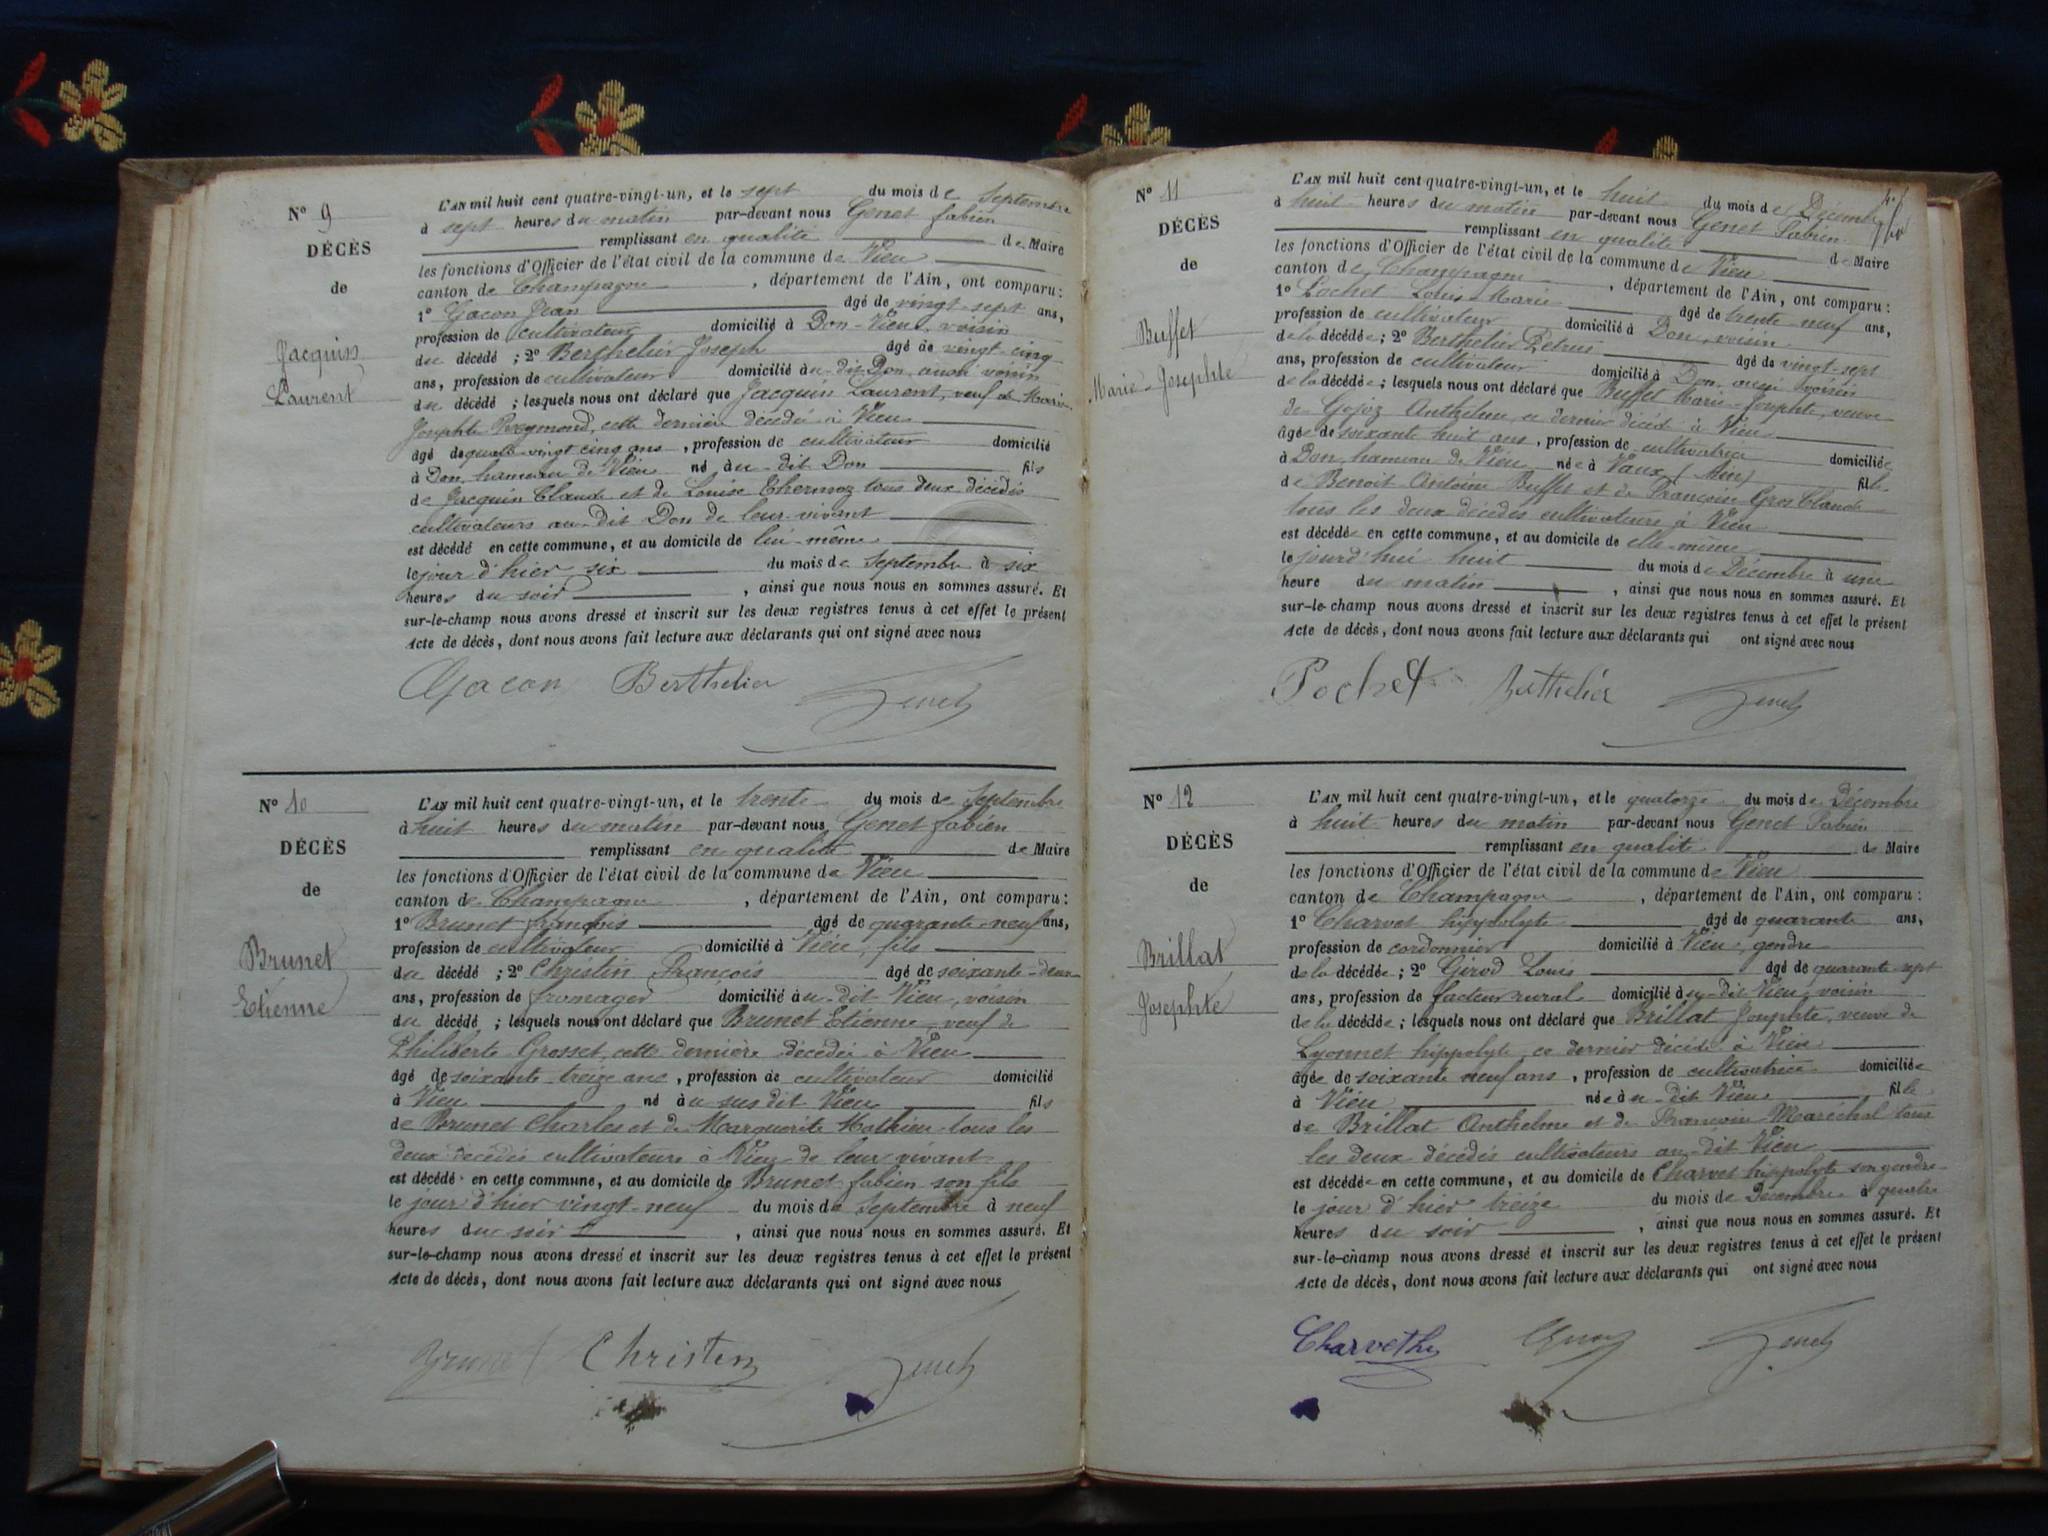 N° 9
DÉCÈS
de
Jacquin
Laurent
L'AN mil huit cent quatre-vingt-un, et le sept du mois de Septembre
à sept heures du matin par-devant nous Genet fabien
remplissant en qualité de Maire
les fonctions d'Officier de l'état civil de la commune de Vieu
canton de Champagne, département de l'Ain, ont comparu :
1° Gacon Jean âgé de vingt-sept ans,
profession de cultivateur domicilié à Don-Vieu, voisin
du décédé ; 2° Berthelier Joseph âgé de vingt-cinq
ans, profession de cultivateur domicilié àu-dit Don, aussi voisin
du décédé ; lesquels nous ont déclaré que Jacquin Laurent, veuf de Marie-
Josephte Reymond, cette dernière décédée à Vieu
âgé de quatre-vingt cinq ans, profession de cultivateur domicilié
à Don, hameau de Vieu né àu-dit Don fils
de Jacquin Claude et de Louise Thermoz tous deux décédés
cultivateurs au-dit Don de leur vivant
est décédé en cette commune, et au domicile de lui-même
le jour d'hier six du mois de Septembre à six
heures du soir, ainsi que nous nous en sommes assuré. Et
sur-le-champ nous avons dressé et inscrit sur les deux registres tenus à cet effet le présent
Acte de décès, dont nous avons fait lecture aux déclarants qui ont signé avec nous
Gacon Berthelier Genet
N° 10
DÉCÈS
de
Brunet
Etienne
L'AN mil huit cent quatre-vingt-un, et le trente du mois de Septembre
à huit heures du matin par-devant nous Genet fabien
remplissant en qualité de Maire
les fonctions d'Officier de l'état civil de la commune de Vieu
canton de Champagne, département de l'Ain, ont comparu :
1° Brunet françois âgé de quarante-neuf ans,
profession de cultivateur domicilié à Vieu, fils
du décédé ; 2° Christin François âgé de soixante-deux
ans, profession de fromager domicilié àu-dit Vieu, voisin
du décédé ; lesquels nous ont déclaré que Brunet Etienne, veuf de
Philiberte Grosset, cette dernière décédée à Vieu
âgé de soixante-treize ans, profession de cultivateur domicilié
à Vieu né àu susdit Vieu fils
de Brunet Charles et de Marguerite Mathieu tous les
deux décédés cultivateurs à Vieu de leur vivant
est décédé en cette commune, et au domicile de Brunet fabien son fils
le jour d'hier vingt-neuf du mois de Septembre à neuf
heures du soir, ainsi que nous nous en sommes assuré. Et
sur-le-champ nous avons dressé et inscrit sur les deux registres tenus à cet effet le présent
Acte de décès, dont nous avons fait lecture aux déclarants qui ont signé avec nous
Brunet Christin Genet
N° 11
DÉCÈS
de
Buffet
Marie-Josephte
L'AN mil huit cent quatre-vingt-un, et le huit du mois de Décembre
à huit heures du matin par-devant nous Genet Fabien
remplissant en qualité de Maire
les fonctions d'Officier de l'état civil de la commune de Vieu
canton de Champagne, département de l'Ain, ont comparu :
1° Pochet Louis-Marie âgé de trente-neuf ans,
profession de cultivateur domicilié à Don, voisin
de la décédée ; 2° Berthelier Petrus âgé de vingt-sept
ans, profession de cultivateur domicilié à Don, aussi voisin
de la décédée ; lesquels nous ont déclaré que Buffet Marie-Josephte, veuve
de Anthelme, ce dernier décédé à Vieu
âgée de soixante huit ans, profession de cultivatrice domiciliée
à Don, hameau de Vieu née à Vaux (Ain) fille
de Benoit Antoine Buffet et de Françoise Gros Claude
tous les deux décédés cultivateurs à Vieu
est décédée en cette commune, et au domicile de elle-même
le jourd'hui huit du mois de Décembre à une
heure du matin, ainsi que nous nous en sommes assuré. Et
sur-le-champ nous avons dressé et inscrit sur les deux registres tenus à cet effet le présent
Acte de décès, dont nous avons fait lecture aux déclarants qui ont signé avec nous
Pochet Berthelier Genet
N° 12
DÉCÈS
de
Brillat
Josephte
L'AN mil huit cent quatre-vingt-un, et le quatorze du mois de Décembre
à huit heures du matin par-devant nous Genet Fabien
remplissant en qualité de Maire
les fonctions d'Officier de l'état civil de la commune de Vieu
canton de Champagne, département de l'Ain, ont comparu :
1° Charvet hippolyte âgé de quarante ans,
profession de cordonnier domicilié à Vieu, gendre
de la décédée ; 2° Girod Louis âgé de quarante-sept
ans, profession de facteur rural domicilié àu-dit Vieu, voisin
de la décédée ; lesquels nous ont déclaré que Brillat Josephte, veuve de
Lyonnet hippolyte, ce dernier décédé à Vieu
âgée de soixante neuf ans, profession de cultivatrice domiciliée
à Vieu née àu-dit Vieu fille
de Brillat Anthelme et de Françoise Maréchal tous
les deux décédés cultivateurs au-dit Vieu
est décédée en cette commune, et au domicile de Charvet hippolyte son gendre
le jour d'hier treize du mois de Décembre à quatre
heures du soir, ainsi que nous nous en sommes assuré. Et
sur-le-champ nous avons dressé et inscrit sur les deux registres tenus à cet effet le présent
Acte de décès, dont nous avons fait lecture aux déclarants qui ont signé avec nous
Charvet hy Genet